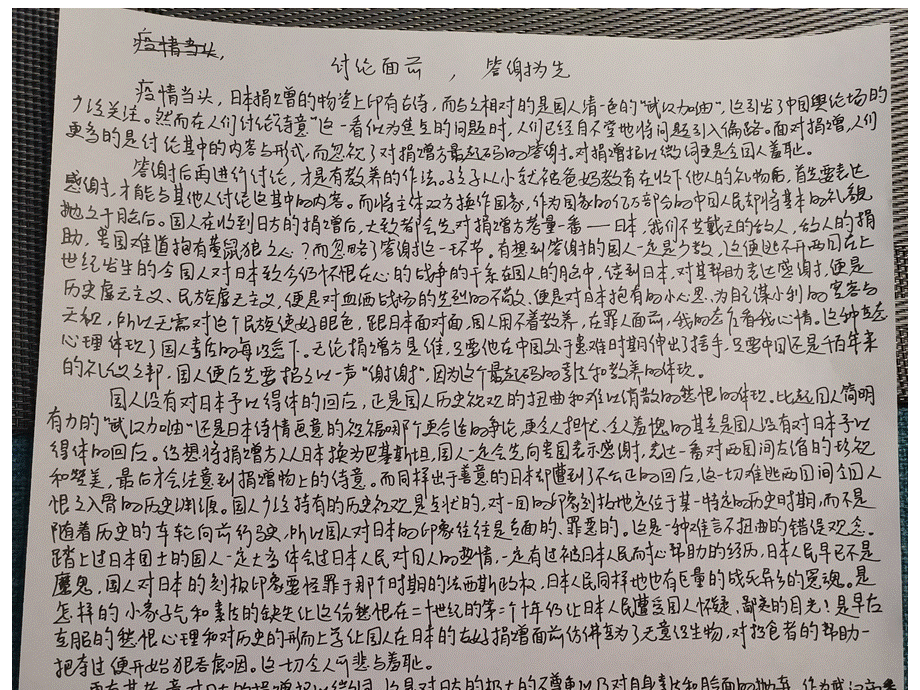 疫情当头,
讨论面前,答谢为先
疫情当头,日本捐赠的物资上印有古诗,而与之相对的是国人清一色的“武汉加油”,这引出了中国舆论场的
广泛关注。然而在人们讨论诗意“这一看似为焦点的问题时,人们已经自不觉地将问题引入偏路。面对捐赠,人们
更多的是讨论其中的内容与形式,而忽视了对捐赠方最起码的答谢。对捐赠抱以微词更是令国人羞耻。
答谢后再进行讨论,才是有教养的作法。孩子从小就被爸妈教育在收下他人的礼物后,首先要表达
感谢,才能与其他人讨论这其中的内容。而将主体双方换作国家,作为国家的亿万部分的中国人民却将基本的礼貌
抛之于脑后。国人在收到日方的捐赠后,大致都会先对捐赠方考量一番——日本,我们不共戴天的敌人,敌人的捐
助,贵国难道抱有黄鼠狼之心?而忽略了答谢这一环节。有想到答谢的国人一定是少数,这便逃不开两国在上
世纪发生的令国人对日本致今仍怀恨在心的战争的干系在国人的脑中,待到日本,对其帮助表达感谢,便是
历史虚无主义、民族虚无主义,便是对血洒战场的先烈的不敬,便是对日本抱有的小心思、为自己谋小利的宽容与
无视,所以无需对这个民族使好眼色,跟日本面对面,国人用不着教养,在罪人面前,我的态度看我心情。这种变态
心理体现了国人素质的每况愈下。无论捐赠方是谁,只要他在中国处于患难时期伸出了援手,只要中国还是千百年来
的礼仪之邦,国人便应先要报之以一声“谢谢”,因为这个最起码的素质和教养的体现。
国人没有对日本予以得体的回应,正是国人历史观的扭曲和难以消散的愁恨的体现。比起国人简明
有力的“武汉加油”还是日本诗情画意的祝福哪个更合适的争论,更令人担忧、令人羞愧的其实是国人没有对日本予以
得体的回应。假想将捐赠方从日本换为巴基斯坦,国人一定会先向贵国表示感谢,表达一番对两国间友谊的珍视
和赞美,最后才会注意到捐赠物上的诗意。而同样出于善意的日本却遭到了不公正的回应,这一切难逃两国间令国人
恨之入骨的历史渊源。国人所持有的历史观是点状的,对一国的印象刻板地定位于某一特定的历史时期,而不是
随着历史的车轮向前行驶,所以国人对日本的印象往往是负面的、罪恶的。这是一种难言不扭曲的错误观念。
踏上过日本国土的国人一定大多体会过日本人民对国人的热情,一定有过被日本人民耐心帮助的经历,日本人民早已不是
魔鬼,国人对日本的刻板印象要怪罪于那个时期的法西斯政权,日本人民同样地也有巨量的战死异乡的冤魂。是
怎样的小家子气和素质的缺失让这份愁恨在二十世纪的第二个十年仍让日本人民遭受国人怀疑、鄙夷的目光!是早应
克服的愁恨心理和对历史的形而上学让国人在日本的友好捐赠面前仿佛变为了无意识生物,对投食者的帮助一
把夺过便开始狼吞虎咽。这一切令人可悲与羞耻。